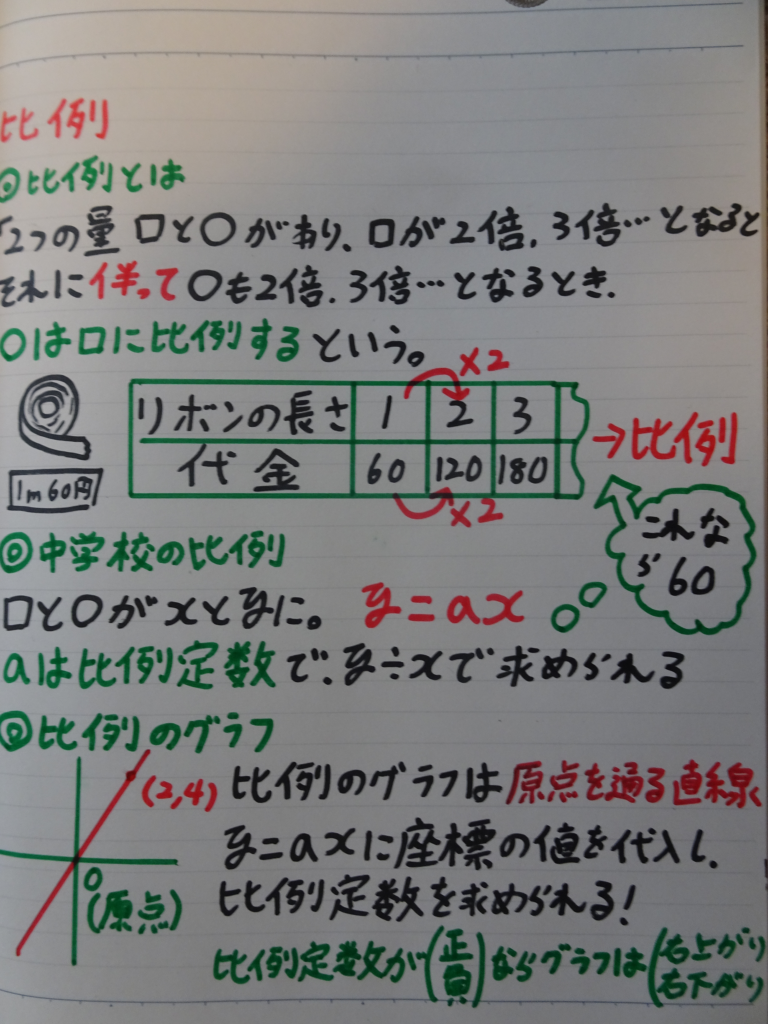 比例
◎比例とは
「2つの量 □と○があり、□が2倍、3倍…となると
それに伴って○も2倍、3倍…となるとき、
○は□に比例するという。
×2
リボンの長さ 1 2 3
代金 60 120 180
×2
→比例
1m60円
これな
ら60
◎中学校の比例
□と○がxとyに。 y=ax
aは比例定数で、y÷xで求められる
◎比例のグラフ
(2,4)
O
(原点)
比例のグラフは原点を通る直線
y=axに座標の値を代入し、
比例定数を求められる!
比例定数が(正 負)ならグラフは(右上がり 右下がり